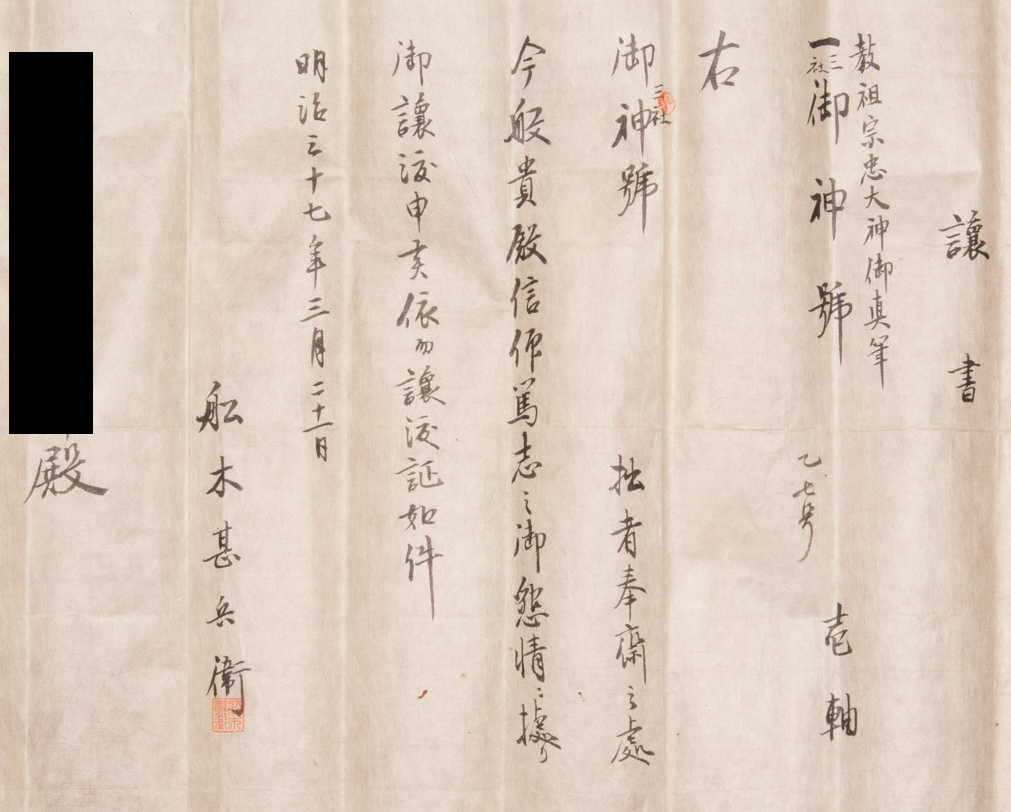 讓書
教祖宗忠大神御真筆
一三社御神號 乙七号 壱軸
右
御三社神號 拙者奉齋之處
今般貴殿信仰篤志之御懇情ニ據り
御讓渡申候依而讓渡証如件
明治三十七年三月二十一日
舩木甚兵衛
殿